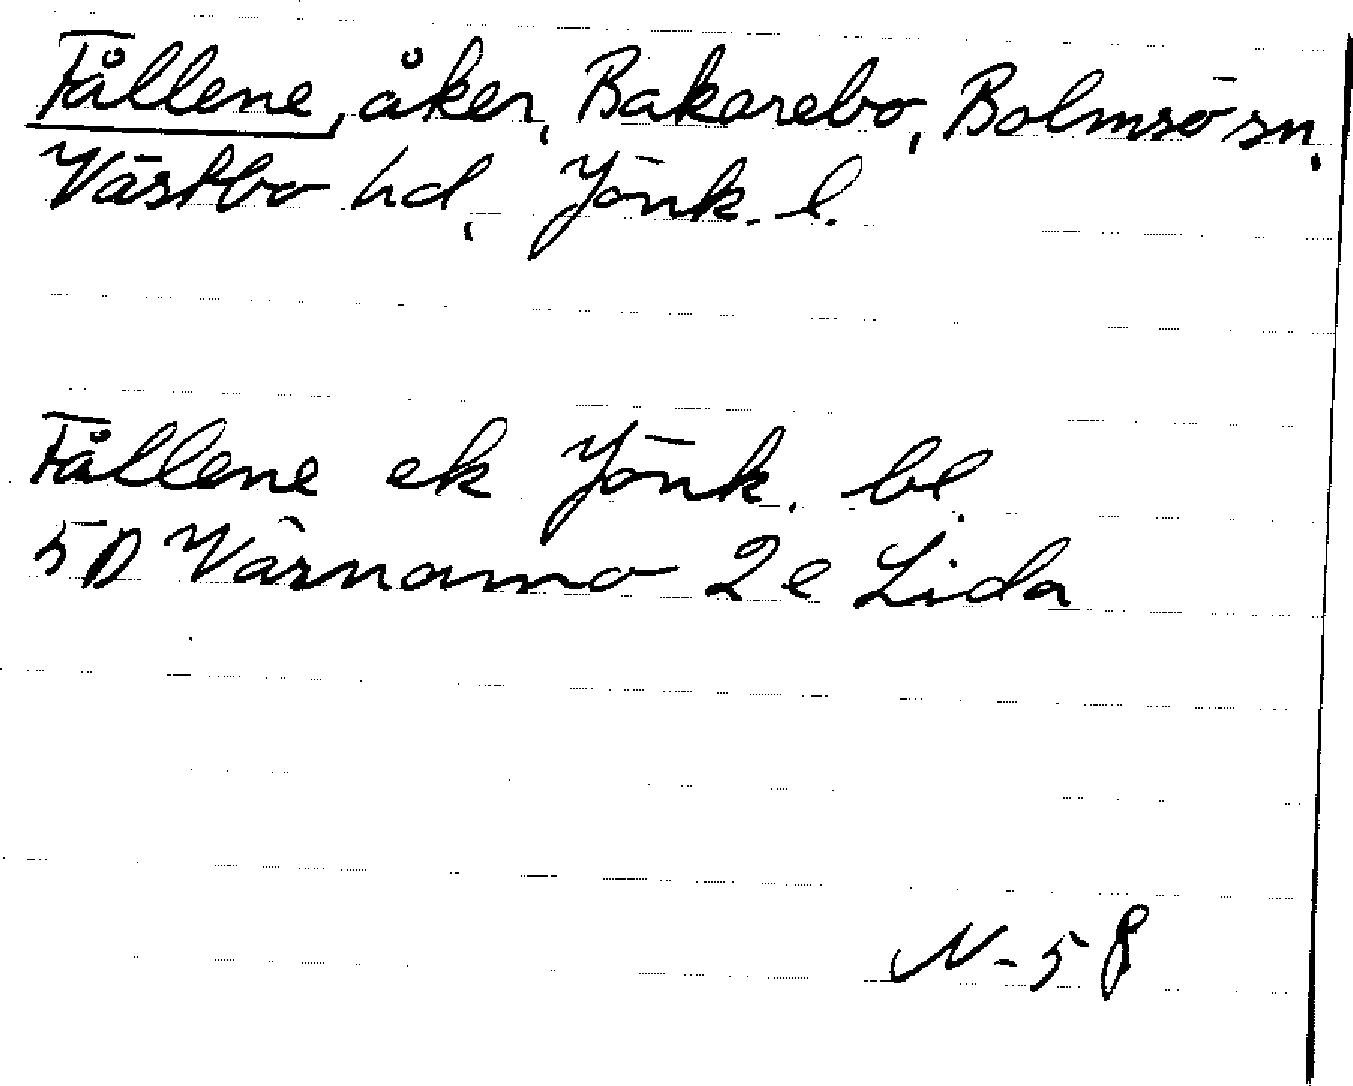 Fållene, åker, Bakarebo, Bolmsö sn,
Västbo hd, Jönk. l.
Fållene ek Jönk. bl.
5D Värnamo 2e Lida
N-58